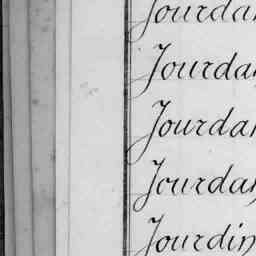 Jourda
Jourda
Jourda
Jourda
Jourdin